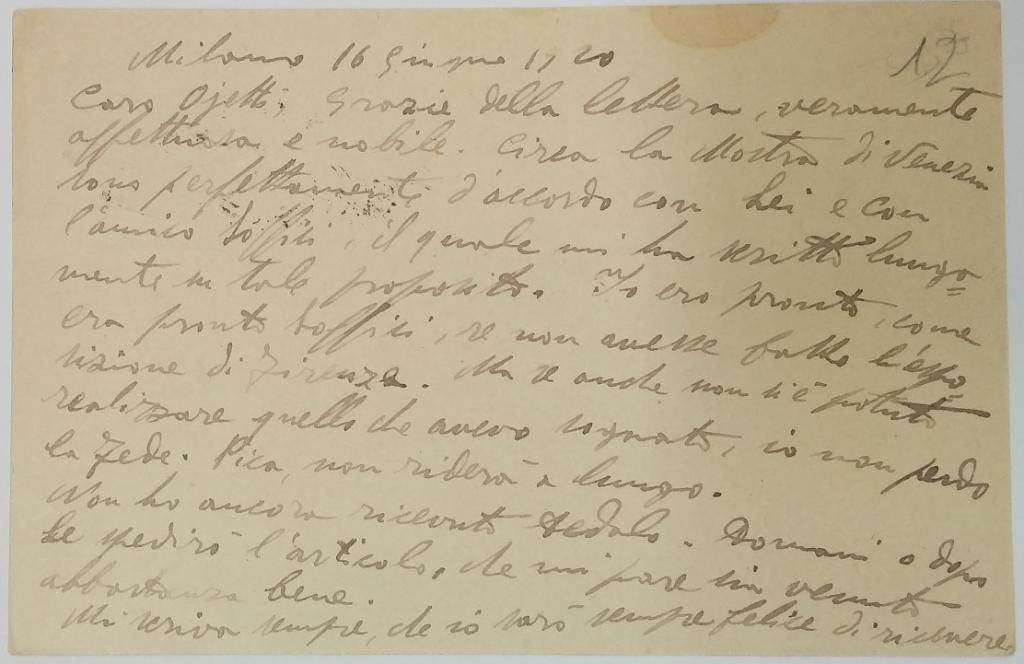 12
Milano 16 Giugno 1920
Caro Ojetti, Grazie della lettera, veramente
affettuosa e nobile. Circa la Mostra di Venezia
sono perfettamente d'accordo con Lei e con
l'amico Soffici, il quale mi ha scritto lunga=
mente in tale proposito. Io ero pronto, come
era pronto Soffici, se non avesse fatto l'espo=
sizione di Firenze. Ma se anche non s'è potuto
realizzare quello che avevo sognato, io non perdo
la fede. Pica, non riderà a lungo.
Non ho ancora ricevuto Dedalo. Domani o dopo
Le spedirò l'articolo, che mi pare sia venuto
abbastanza bene.
Mi scriva sempre, che io sarò sempre felice di ricevere